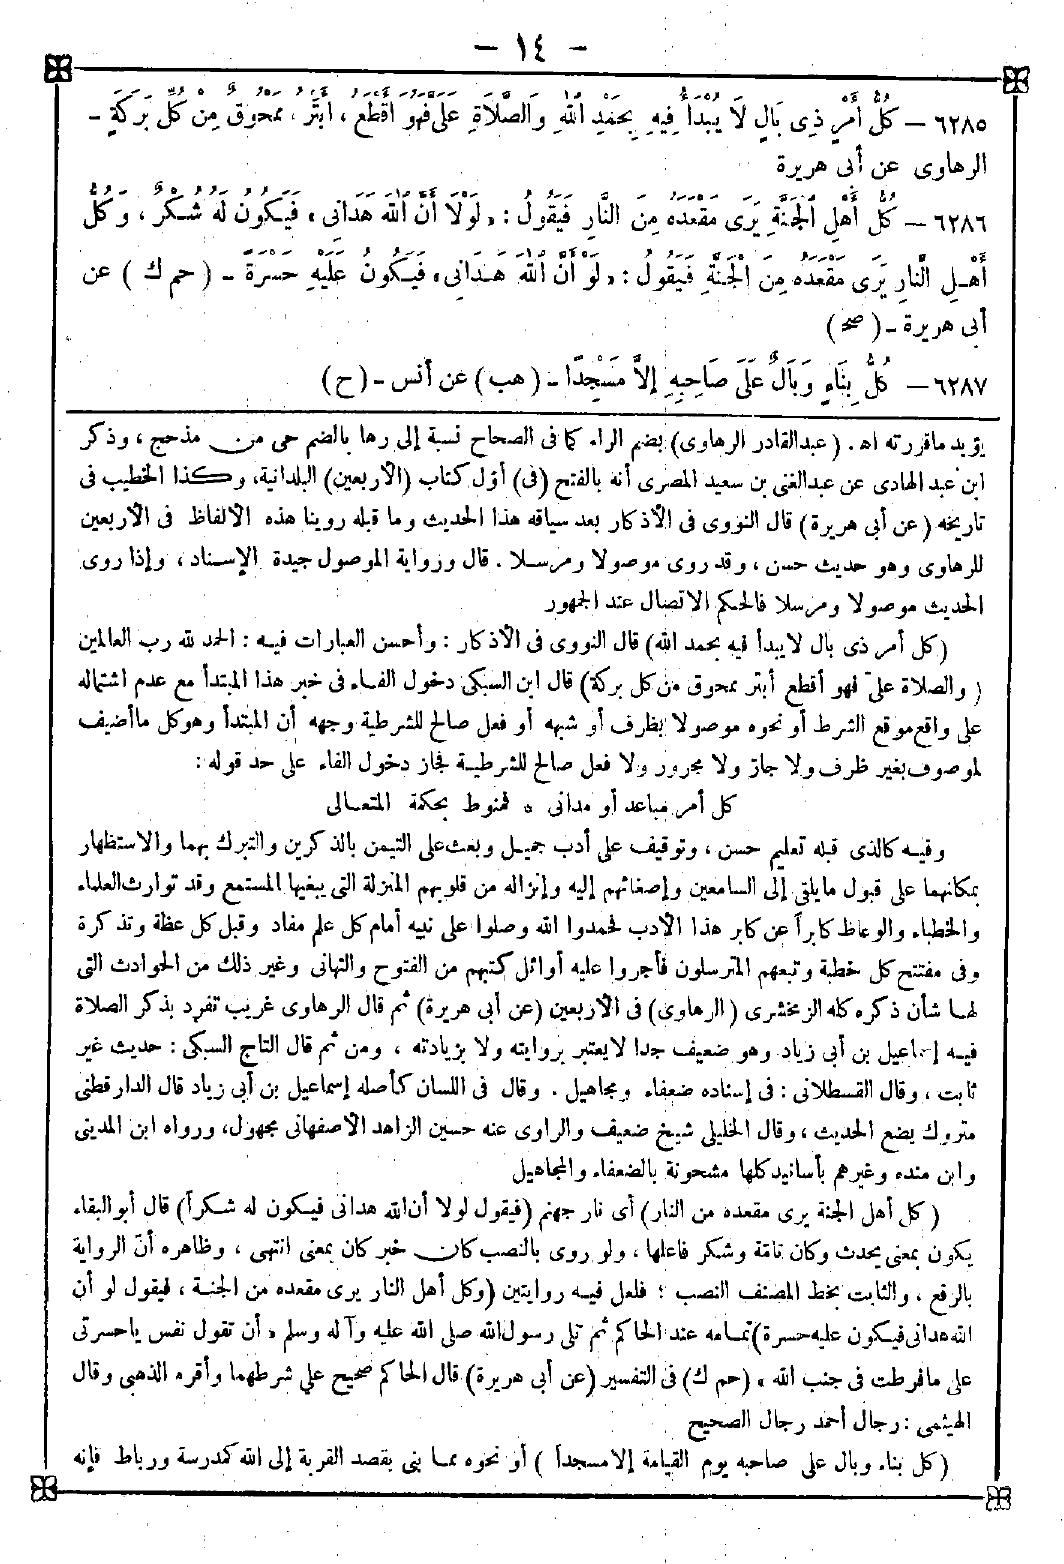 - ١٤ -
٦٢٨٥ – كُلُّ أَمْرٍ ذِى بَالٍ لَا يُبْدَأُ فِيهِ بِحَمْدِ اللهِ وَالصَّلَاةِ عَلَىَّ فَهُوَ أَقْطَعُ ، أَبْتَرُ ، مَمْحُوقٌ مِنْ كُلِّ بَرَكَةٍ -
الرهاوى عن أبى هريرة
٦٢٨٦ – كُلُّ أَهْلِ الْجَنَّةِ يَرَى مَقْعَدَهُ مِنَ النَّارِ فَيَقُولُ : «لَوْلَا أَنَّ اللهَ هَدَانِى» فَيَكُونُ لَهُ شُكْرٌ ، وَكُلُّ
أَهْلِ النَّارِ يَرَى مَقْعَدَهُ مِنَ الْجَنَّةِ فَيَقُولُ : «لَوْ أَنَّ اللهَ هَدَانِى» فَيَكُونُ عَلَيْهِ حَسْرَةً - ( حم ك ) عن
أبى هريرة - ( صح )
٦٢٨٧ – كُلُّ بِنَاءٍ وَبَالٌ عَلَى صَاحِبِهِ إِلَّا مَسْجِدًا - ( هب ) عن أنس - ( ح )
يؤيد ماقررته اه . ( عبدالقادر الرهاوى ) بضم الراء كما فى الصحاح نسبة إلى رها بالضم حى من مذحج ، وذكر
ابن عبد الهادى عن عبدالغنى بن سعيد المصرى أنه بالفتح (فى) أوّل كتاب (الأربعين) البلدانية، وكذا الخطيب فى
تاريخه (عن أبى هريرة) قال النووى فى الأذكار بعد سياقه هذا الحديث وما قبله روينا هذه الالفاظ فى الأربعين
للرهاوى وهو حديث حسن ، وقد روى موصولا ومرسلا . قال ورواية الموصول جيدة الإسناد ، وإذا روى
الحديث موصولا ومرسلا فالحكم الاتصال عند الجمهور
(كل أمر ذى بال لايبدأ فيه بحمد الله) قال النووى فى الأذكار : وأحسن العبارات فيه : الحمد لله رب العالمين
( والصلاة علىّ فهو أقطع أبتر ممحوق من كل بركة) قال ابن السبكى دخول الفاء فى خبر هذا المبتدأ مع عدم اشتماله
على واقع موقع الشرط أو نحوه موصولا بظرف أو شبهه أو فعل صالح للشرطية وجهه أن المبتدأ وهو كل ماأضيف
لموصوف بغير ظرف ولا جاز ولا مجرور ولا فعل صالح للشرطية فجاز دخول الفاء على حد قوله :
كل أمر مباعد أو مدانى ه فمنوط بحكمة المتعالى
وفيه كالذى قبله تعليم حسن ، وتوقيف على أدب جميل وبعث على التيمن بالذكرين والتبرك بهما والاستظهار
بمكانهما على قبول مايلقى إلى السامعين وإصغائهم إليه وإنزاله من قلوبهم المنزلة التى يبغيها المستمع وقد توارث العلماء
والخطباء والوعاظ كابراً عن كابر هذا الأدب فحمدوا الله وصلوا على نبيه أمام كل علم مفاد وقبل كل عظة وتذكرة
وفى مفتتح كل خطبة وتبعهم المترسلون فأجروا عليه أوائل كتبهم من الفتوح والتهانى وغير ذلك من الحوادث التى
لها شأن ذكره كله الزمخشرى ( الرهاوى ) فى الأربعين (عن أبى هريرة) ثم قال الرهاوى غريب تفرد بذكر الصلاة
فيه إسماعيل بن أبى زياد وهو ضعيف جدا لايعتبر بروايته ولا بزيادته ، ومن ثم قال التاج السبكى : حديث غير
ثابت ، وقال القسطلانى : فى إسناده ضعفاء ومجاهيل . وقال فى اللسان كأصله إسماعيل بن أبى زياد قال الدارقطنى
متروك يضع الحديث ، وقال الخليلى شيخ ضعيف والراوى عنه حسين الزاهد الأصفهانى مجهول، ورواه ابن المدينى
وابن منده وغيرهم بأسانيد كلها مشحونة بالضعفاء والمجاهيل
( كل أهل الجنة يرى مقعده من النار) أى نار جهنم (فيقول لولا أن الله هدانى فيكون له شكراً) قال أبو البقاء
يكون بمعنى يحدث وكان تامّة وشكر فاعلها ، ولو روى بالنصب كان خبر كان بمعنى انتهى ، وظاهره أنّ الرواية
بالرفع ، والثابت بخط المصنف النصب ؛ فلعل فيه روايتين (وكل أهل النار يرى مقعده من الجنة ، فيقول لو أن
الله هدانى فيكون عليه حسرة) تمامه عند الحاكم ثم تلى رسول الله صلى الله عليه وآله وسلم «أن تقول نفس ياحسرتى
على مافرطت فى جنب الله» (حم ك) فى التفسير (عن أبى هريرة) قال الحاكم صحيح على شرطهما وأقره الذهبى وقال
الهيثمى : رجال أحمد رجال الصحيح
( كل بناء وبال على صاحبه يوم القيامة إلا مسجداً ) أو نحوه مما بنى بقصد القربة إلى الله كمدرسة ورباط فإنه